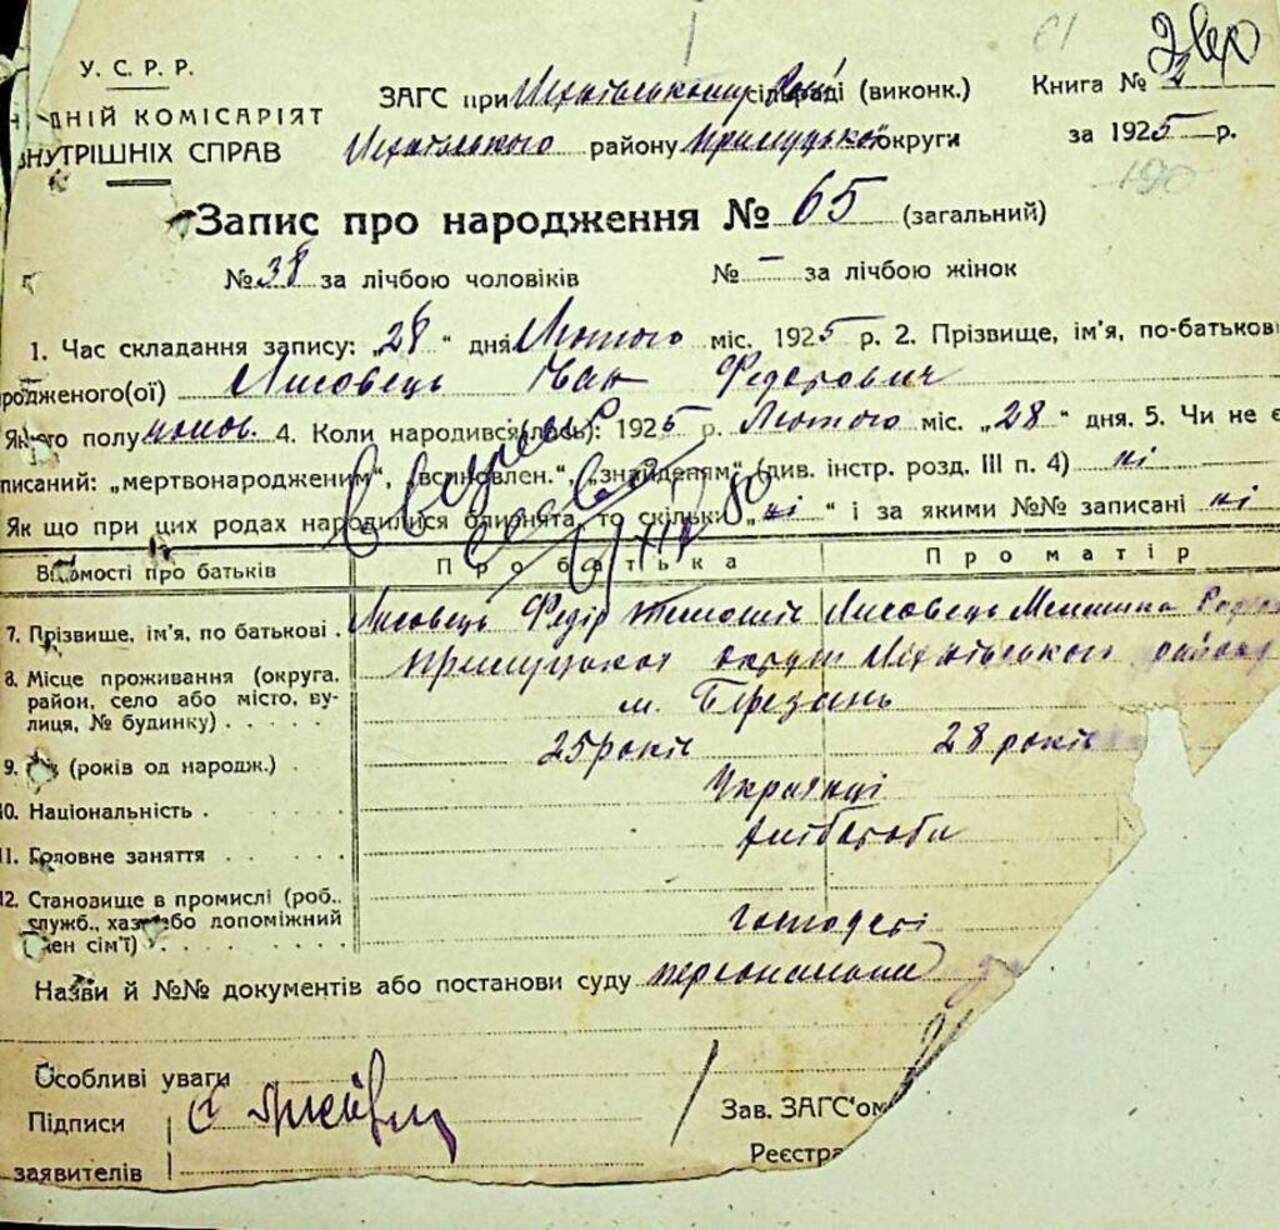 У. С. Р. Р.
ДНІЙ КОМІСАРІЯТ
ВНУТРІШНІХ СПРАВ
ЗАГС при сільраді (виконк.)
району округи
Книга №
за 1925 р.
190
Запис про народження № 65 (загальний)
№ 38 за лічбою чоловіків № — за лічбою жінок
1. Час складання запису: „28“ дня Лютого міс. 1925 р. 2. Прізвище, ім'я, по-батькові
родженого(ої) Лисовець Іван Федорович
Якого полу чолов. 4. Коли народився(лась): 1925 р. Лютого міс. „28“ дня. 5. Чи не є
писаний: „мертвонародженим“, „всиновлен.“, „знайденям“ (див. інстр. розд. III п. 4) ні
Як що при цих родах народилися близнята, то скільки „ні“ і за якими №№ записані ні
Відомості про батьків Про батька Про матір
7. Прізвище, ім'я, по батькові . Лисовець Федір Лисовець
8. Місце проживання (округа, Прилуцької округи району
район, село або місто, ву- м. Березань
лиця, № будинку) . . . . .
9. Вік (років од народж.) . 25 років 28 років
10. Національність . Українці
11. Головне заняття . . . . . хлібороби
12. Становище в промислі (роб.,
служб., хаз. або допоміжний господарі
член сім'ї) . . . . . . . .
Назви й №№ документів або постанови суду персональни
Особливі уваги
Підписи
заявителів
Зав. ЗАГС'ом
Реєстра